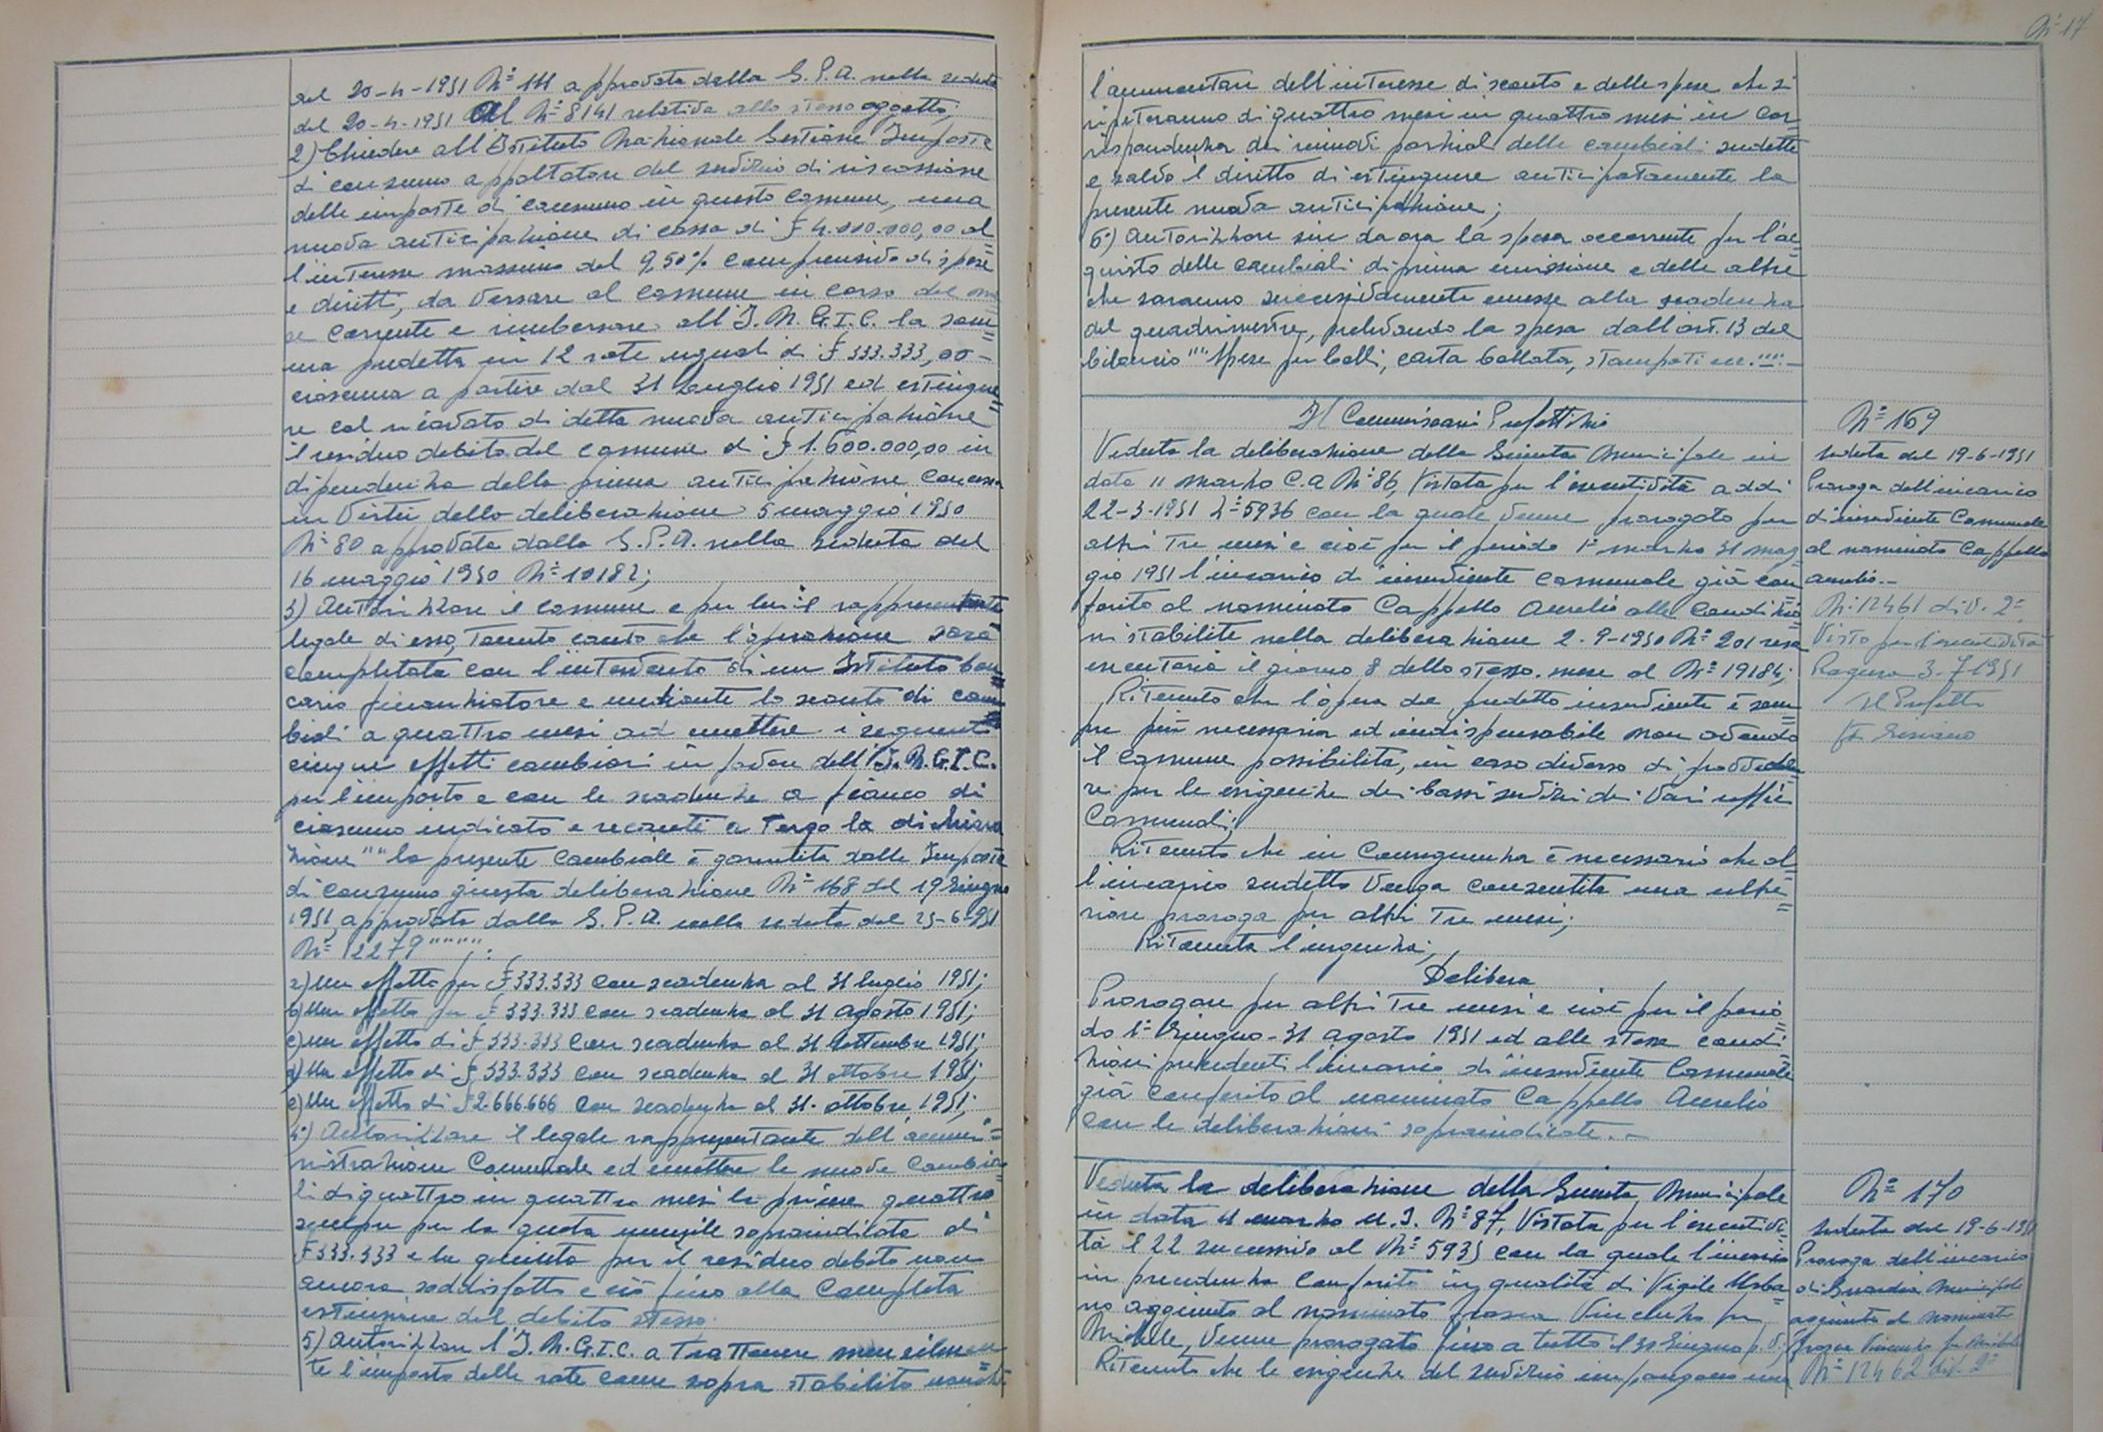 del 20-4-1951 N° 111 approvata dalla G.P.A. nella seduta
del 20-4-1951 al N° 8141 relativa allo stesso oggetto;
2) Chiedere all'Istituto Nazionale Gestione Imposte
di consumo appaltatore del servizio di riscossione
delle imposte di consumo in questo comune, una
nuova anticipazione di cassa di £ 4.000.000,00 al=
l'interesse massimo del 9,50% comprensivo di spese
e diritti, da versare al comune in corso del me
se corrente e rimborsare all'I.N.G.I.C. la som=
ma predetta in 12 rate uguali di £ 333.333,00 -
ciascuna a partire dal 31 luglio 1951 ed estingue=
re col ricavato di detta nuova anticipazione
il residuo debito del comune di £ 1.600.000,00 in
dipendenza della prima anticipazione concessa
in virtù della deliberazione 5 maggio 1950
N° 80 approvata dalla G.P.A. nella seduta del
16 maggio 1950 N° 10182;
3) Autorizzare il comune e per lui il rappresentante
legale di esso, tenuto conto che l'operazione sarà
completata con l'intervento di un Istituto ban=
cario finanziatore e mediante lo sconto di cam=
biali a quattro mesi ad emettere i seguenti
cinque effetti cambiari in favore dell'I.N.G.I.C.
per l'importo e con le scadenze a fianco di
ciascuno indicato e recanti a tergo la dichiara
zione "" la presente cambiale è garantita dalle Imposte
di consumo giusta deliberazione N° 168 del 19 Giugno
1951, approvata dalla G.P.A. nella seduta del 25-6-951
N° 12279"""":
a) Un effetto per £ 333.333 con scadenza al 31 luglio 1951;
b) Un effetto per £ 333.333 con scadenza al 31 agosto 1951;
c) Un effetto di £ 333.333 con scadenza al 31 settembre 1951;
d) Un effetto di £ 333.333 con scadenza al 31 ottobre 1951;
e) Un effetto di £ 2.666.666 con scadenza al 31 ottobre 1951;
4°) Autorizzare il legale rappresentante dell'ammi=
nistrazione Comunale ad emettere le nuove cambia=
li di quattro in quattro mesi le prime quattro
sempre per la quota mensile sopraindicata di
£ 333.333 e la quinta per il residuo debito non
ancora soddisfatto e ciò fino alla completa
estinzione del debito stesso.
5) Autorizzare l'I.N.G.I.C. a trattenere mensilmen=
te l'importo delle rate come sopra stabilito nonchè
N° 17
l'ammontare dell'interesse di sconto e delle spese che si
ripeteranno di quattro mesi in quattro mesi in cor
rispondenza dei rinnovi parziali delle cambiali sudette
e salvo il diritto di estinguere anticipatamente la
presente nuova anticipazione;
6°) Autorizzare sin da ora la spesa occorrente per l'ac=
quisto delle cambiali di prima emissione e delle altre
che saranno successivamente emesse alla scadenza
del quadrimestre, prelevando la spesa dall'art. 13 del
bilancio "" Spese per bolli, carta bollata, stampati ecc."".-
Il Commissario Prefettizio
Veduta la deliberazione della Giunta Municipale in
data 11 marzo c.a N° 86, Vistata per l'esecutività addì
22-3-1951 N° 5936 con la quale venne prorogato per
altri tre mesi e cioè per il periodo 1° marzo 31 mag=
gio 1951 l'incarico di inserviente comunale già con=
ferito al nominato Cappello Aurelio alle condizio=
ni stabilite nella deliberazione 2-9-1950 N° 201 resa
esecutoria il giorno 8 dello stesso mese al N° 19184;
Ritenuto che l'opera del predetto inserviente è sem=
pre più necessaria ed indispensabile non avendo
il comune possibilità, in caso diverso di provvede=
re per le esigenze dei bassi servizi dei vari uffici
Comunali;
Ritenuto che in conseguenza è necessario che al=
l'incarico sudetto venga consentita una ulte=
riore proroga per altri tre mesi;
Ritenuta l'urgenza;
Delibera
Prorogare per altri tre mesi e cioè per il perio=
do 1° Giugno - 31 agosto 1951 ed alle stesse condi=
zioni precedenti l'incarico di inserviente Comunale
già conferito al nominato Cappello Aurelio
con le deliberazioni sopraindicate.-
N° 169
seduta del 19-6-1951
Proroga dell'incarico
di inserviente Comunale
al nominato Cappello
Aurelio.-
N. 12461 div. 2°
Visto per l'esecutività
Ragusa 3-7-1951
Il Prefetto
Veduta la deliberazione della Giunta Municipale
in data 11 marzo u.s. N° 87, Vistata per l'esecutivi=
tà il 22 successivo al N° 5935 con la quale l'incarico
in precedenza conferito in qualità di Vigile Urba=
no aggiunto al nominato Vincenzo fu
Michele, venne prorogato fino a tutto il 30 Giugno p.v.;
Ritenuto che le esigenze del servizio impongono una
N° 170
seduta del 19-6-1951
Proroga dell'incarico
di Guardia Municipale
aggiunto al nominato
Vincenzo fu Michele
N° 12462 div. 2°